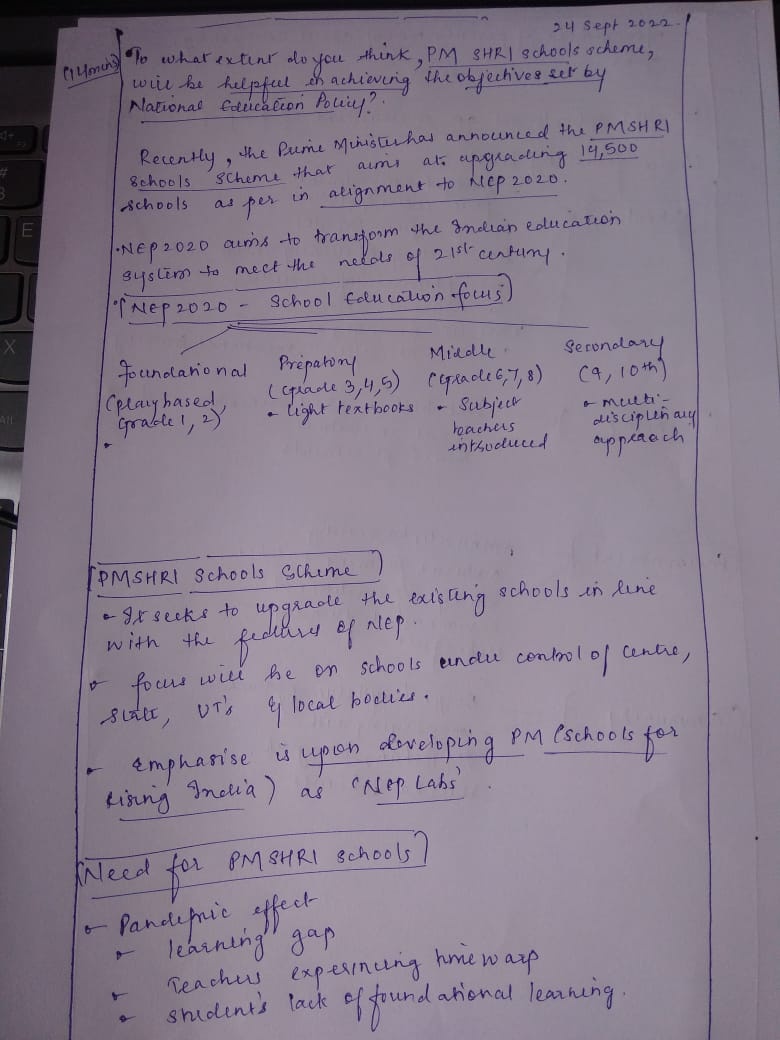 24 Sept 2022.
(14mks) To what extent do you think, PM SHRI schools scheme,
will be helpful in achieving the objectives set by
National Education Policy?
Recently, the Prime Minister has announced the PMSHRI
schools scheme that aims at upgrading 14,500
schools as per in alignment to NEP 2020.
• NEP 2020 aims to transform the Indian education
system to meet the needs of 21st century.
• NEP 2020 - School Education focus
Foundational Prepatory Middle Secondary
(playbased, (Grade 3,4,5) (Grade 6,7,8) (9, 10th)
Grade 1, 2) • light textbooks • Subject • multi-
teachers disciplinary
introduced approach
PMSHRI Schools Scheme
• It seeks to upgrade the existing schools in line
with the features of NEP.
• focus will be on schools under control of centre,
state, UT's & local bodies.
• Emphasise is upon developing PM (Schools for
rising India) as 'Nep Labs'.
Need for PMSHRI schools
• Pandemic effect
• learning gap
• Teachers experincing time warp
• student's lack of foundational learning.